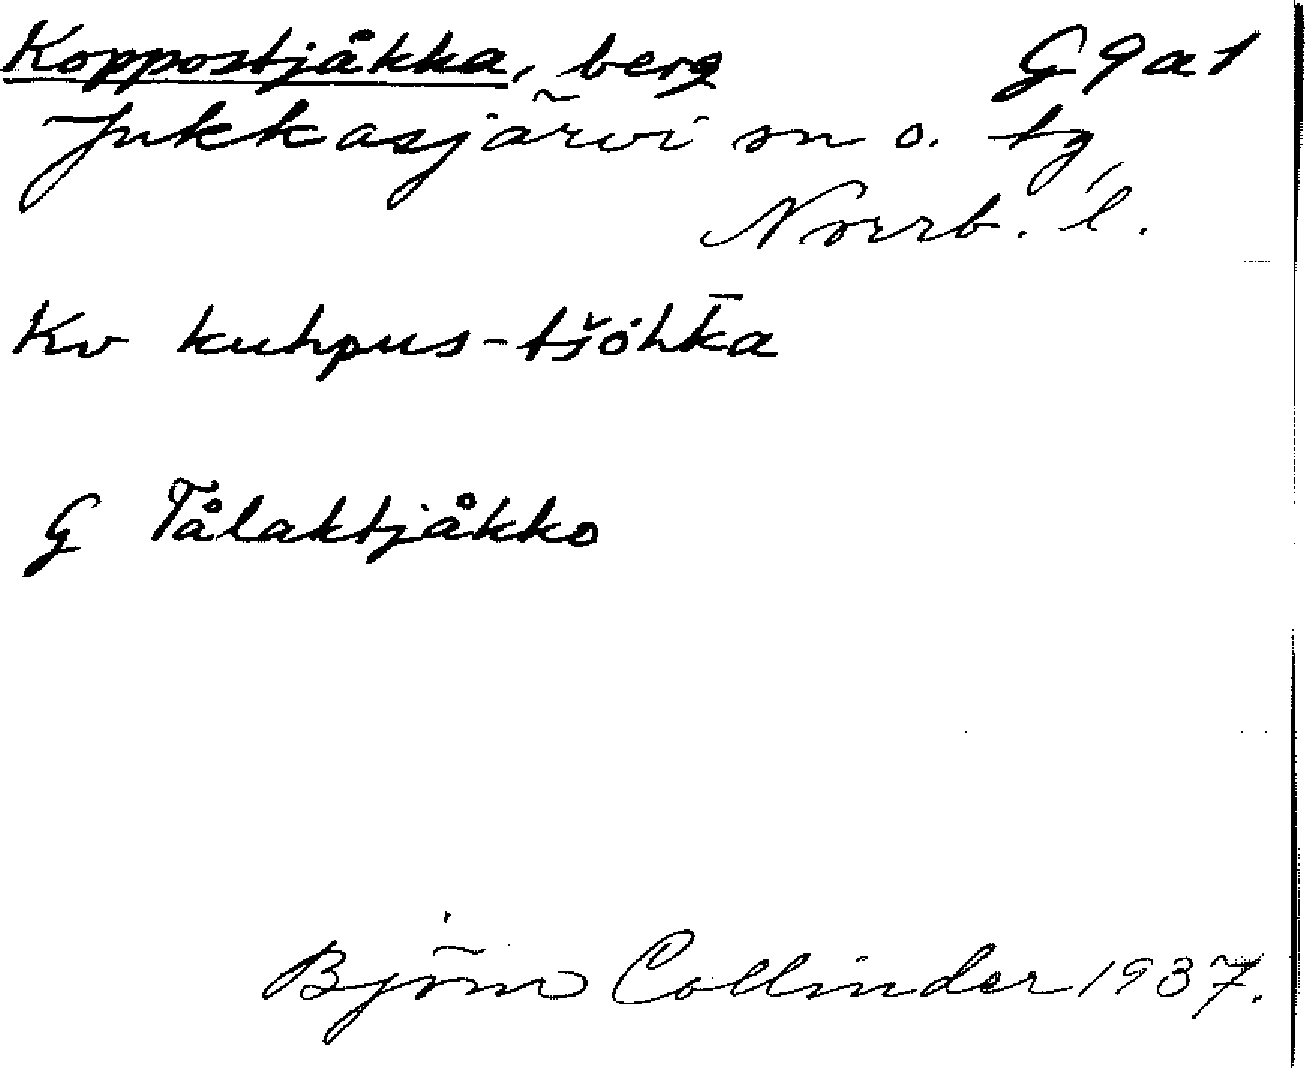 Koppostjåkka, berg G 9 a 1
Jukkasjärvi sn o. tg,
Norrb. l.
Kv kuhpus-tšȯhk̄a
G Tålaktjåkko
Björn Collinder 1937.